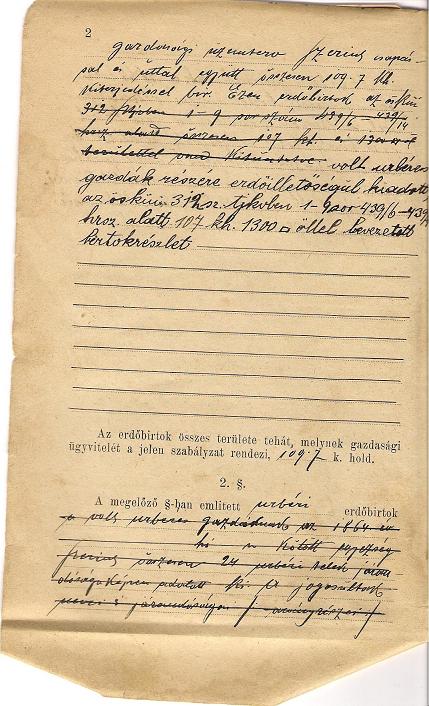 2
gazdasági üzemterv szerint csapás-
sal és úttal együtt összesen 109.7 kh.
kiterjedéssel bír. Ezen erdőbirtok az ösküi
312 1-9 sorszám 439/6 - 439/14
hrsz. alatt összesen 107 kh. és 1300
területtel volt urbéres
gazdák részére erdőilletőségül kiadott
az ösküi 312 sz. tjkvben 1-9 sor 439/6-439/14
hrsz. alatt 107 kh. 1300 □ öllel bevezetett
birtokrészlet
Az erdőbirtok összes területe tehát, melynek gazdasági
ügyvitelét a jelen szabályzat rendezi, 109.7 k. hold.
2. §.
A megelőző §-ban említett urbéri erdőbirtok
a volt urbéres gazdáknak az 1864 év
kötött egyezség
szerint összesen 24 urbéri telek járan-
dóságaképen adatott ki a jogosultak
járandóságon